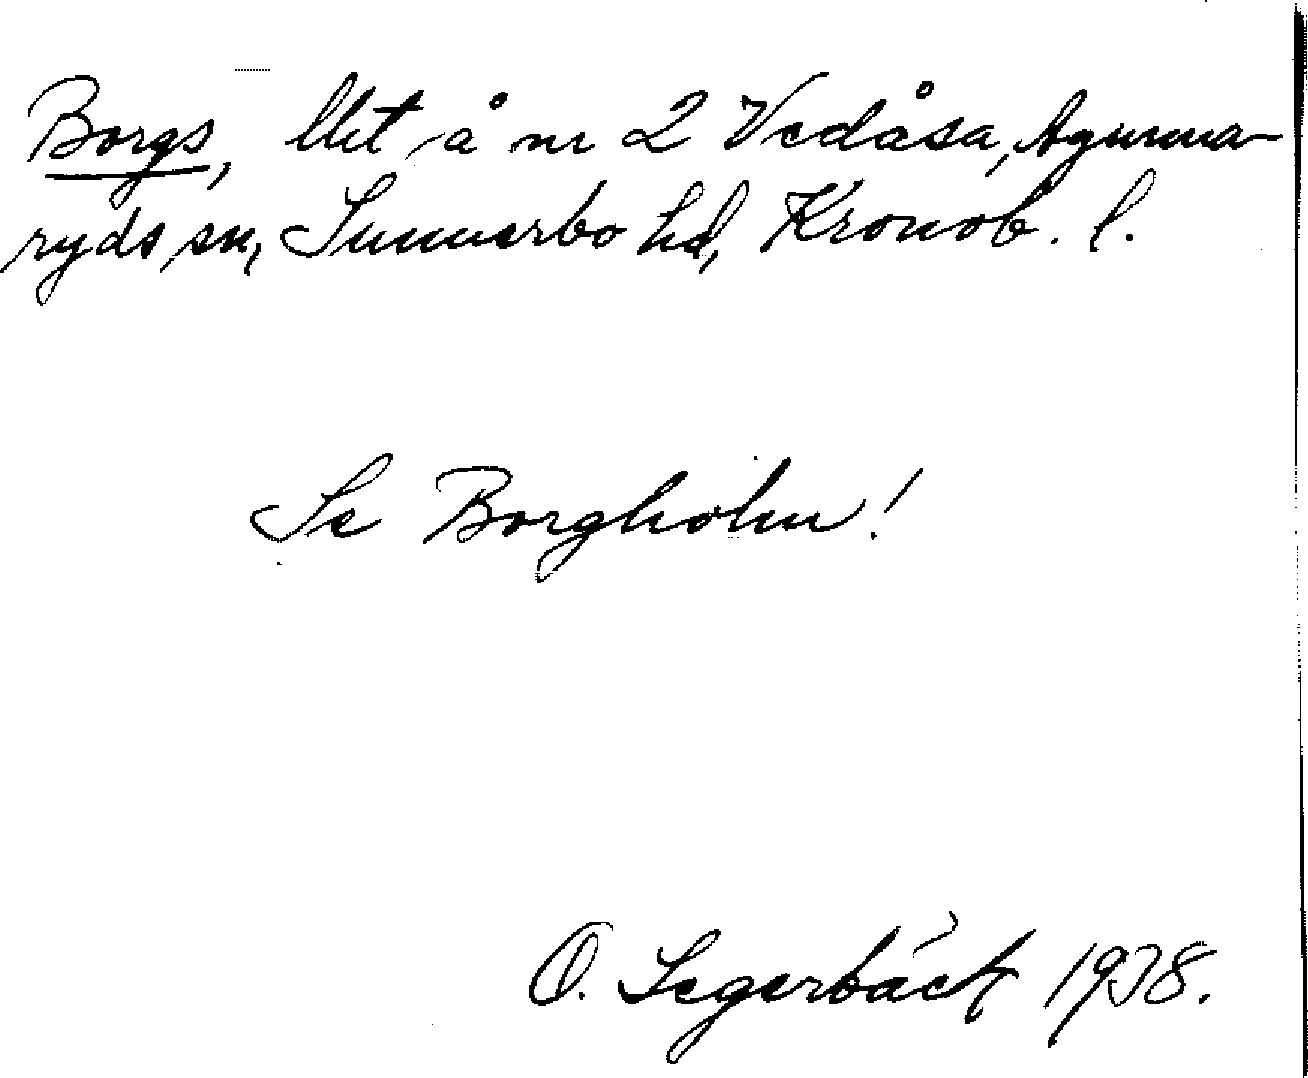 Borgs, llet å nr 2 Vedåsa, Agunna-
ryds sn, Sunnerbo hd, Kronob. l.
Se Borgholm!
O. Segerbäck 1938.